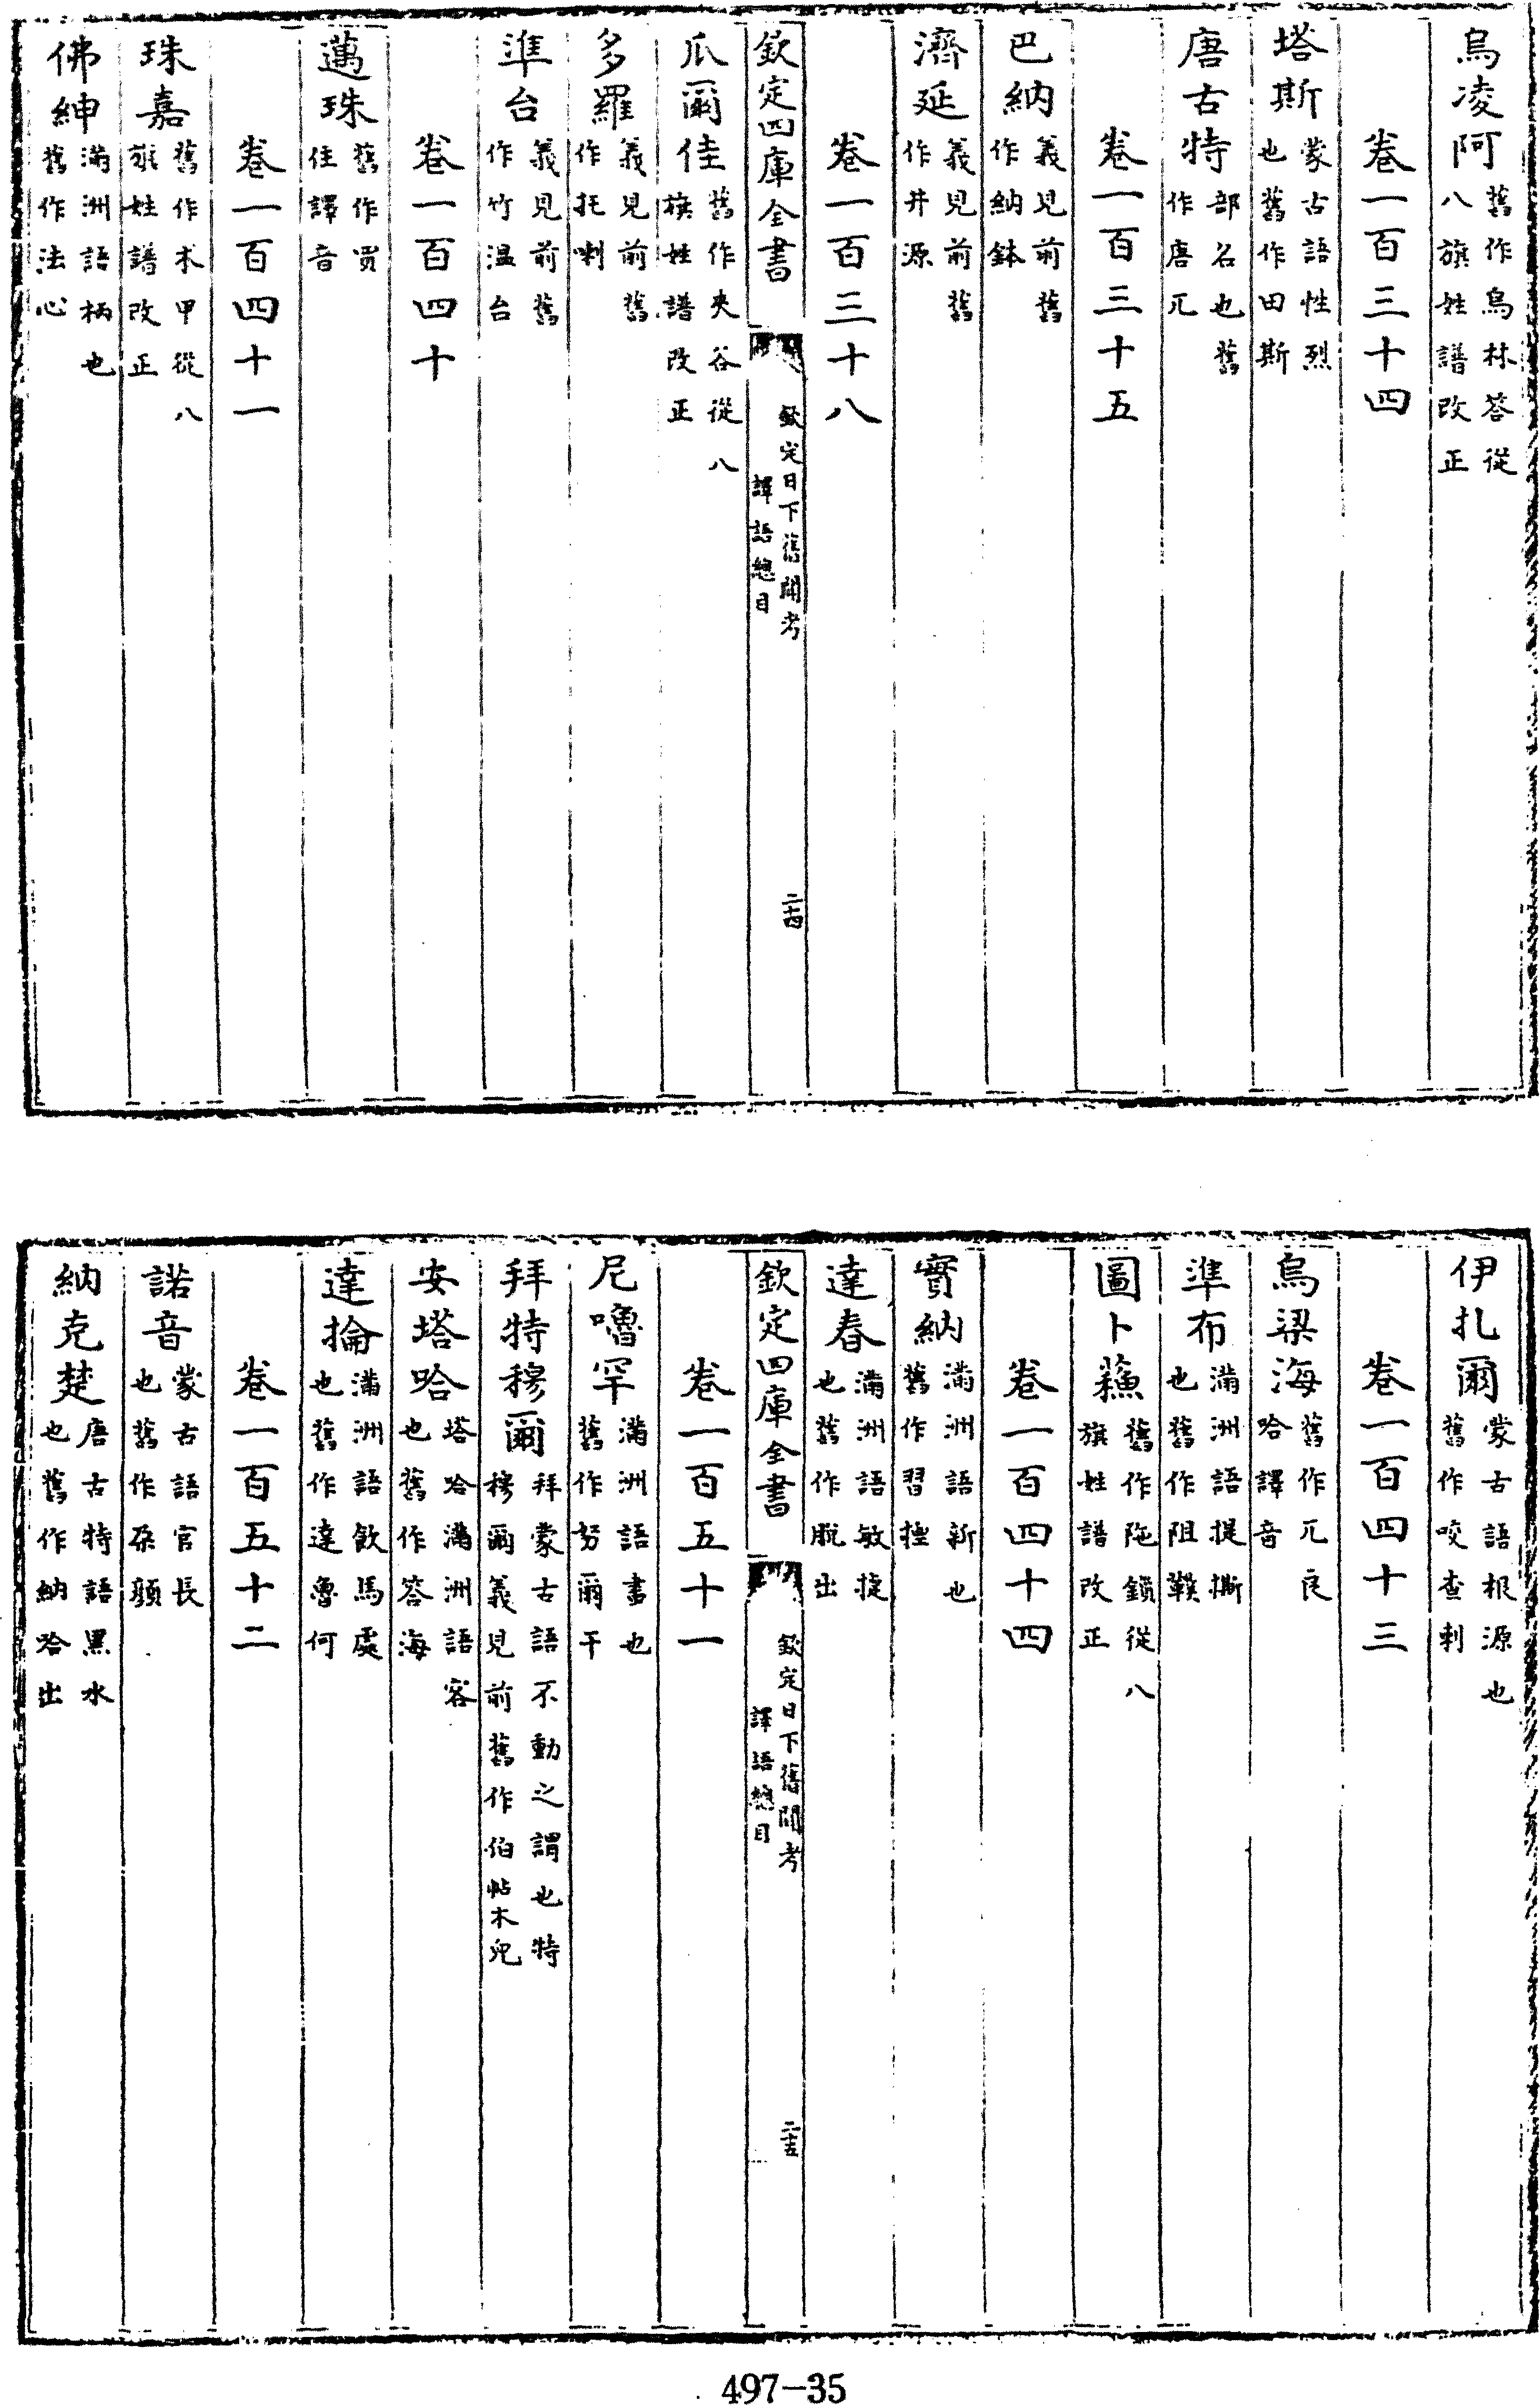 烏凌阿舊作烏林荅從八旗姓譜改正
卷一百三十四
塔斯蒙古語性烈也舊作田斯
唐古特部名也舊作唐兀
卷一百三十五
巴納義見前舊作納鉢
濟延義見前舊作井源
卷一百三十八
欽定四庫全書 欽定日下舊聞考譯語總目 二十四
瓜爾佳舊作夾谷從八旗姓譜改正
多羅義見前舊作托喇
準台義見前舊作竹温台
卷一百四十
邁珠舊作買住譯音
卷一百四十一
珠嘉舊作术甲從八旗姓譜改正
佛紳滿洲語柄也舊作法心
伊扎爾蒙古語根源也舊作咬查剌
卷一百四十三
烏梁海舊作兀良哈譯音
準布滿洲語提撕也舊作阻䪁
圖卜蘓舊作陁鎖從八旗姓譜改正
卷一百四十四
實納滿洲語新也舊作習揑
達春滿洲語敏捷也舊作脱出
欽定四庫全書 欽定日下舊聞考譯語總目 二十五
卷一百五十一
尼嚕罕滿洲語畫也舊作努爾干
拜特穆爾拜蒙古語不動之謂也特穆爾義見前舊作伯帖木兒
安塔哈塔哈滿洲語客也舊作答海
達掄滿洲語飲馬處也舊作達魯何
卷一百五十二
諾音蒙古語官長也舊作朶顔
納克楚唐古特語黑水也舊作納哈出
497-35